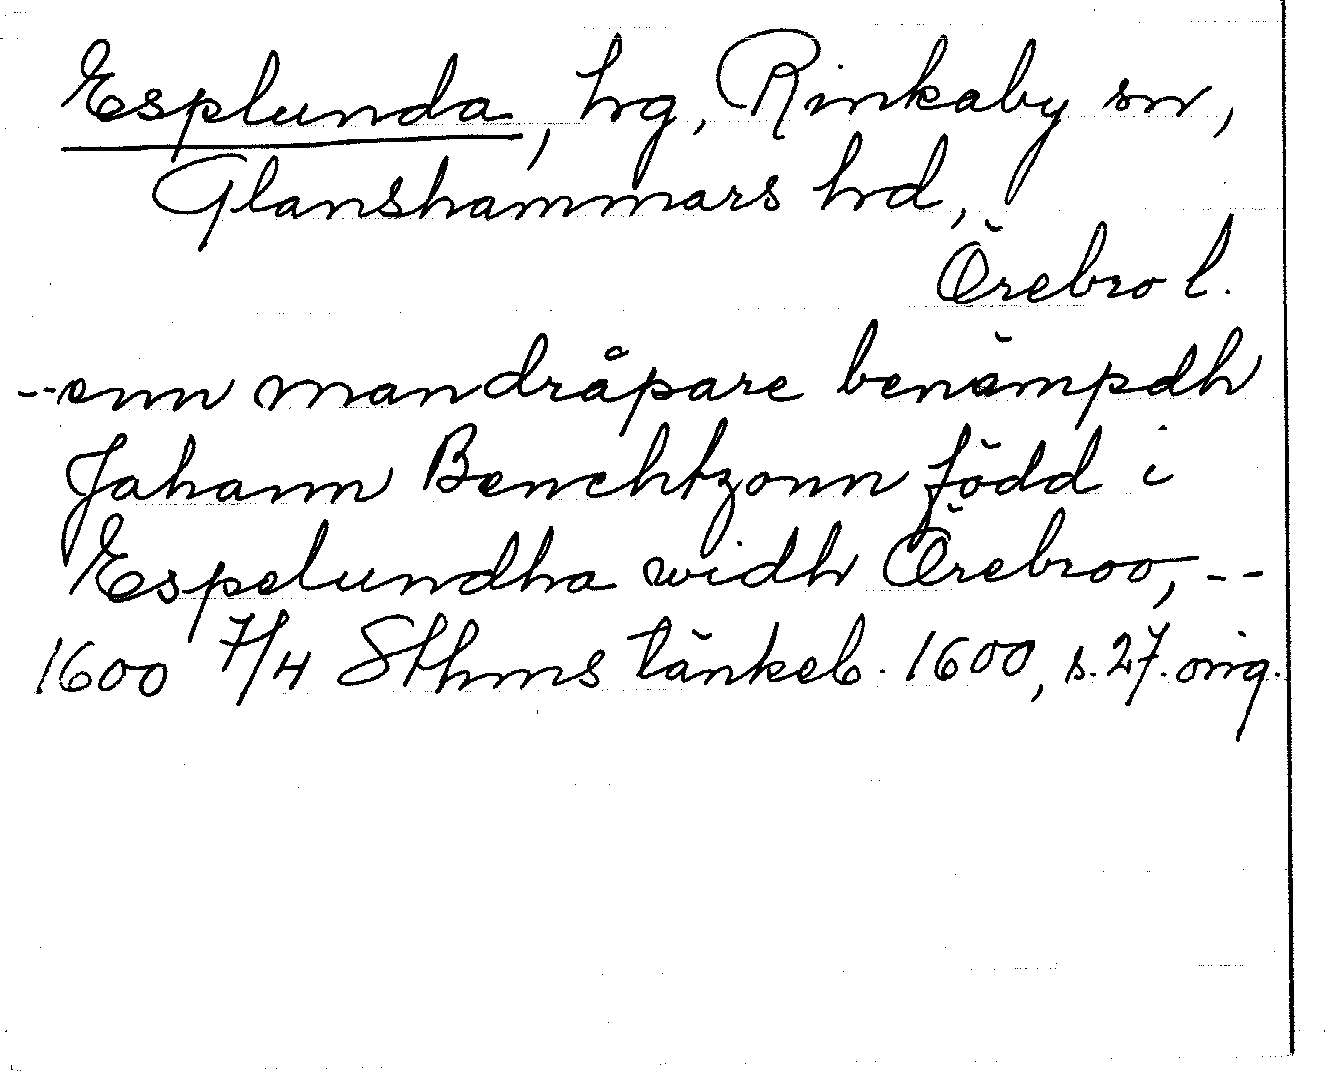 Esplunda, hg, Rinkaby sn,
Glanshammars hrd,
Örebro l.
--enn mandråpare benämpdh
Jahann Benchtzonn född i
Espelundha widh Örebroo, --
1600 7/4 Sthms tänkeb. 1600, s. 27. orig.